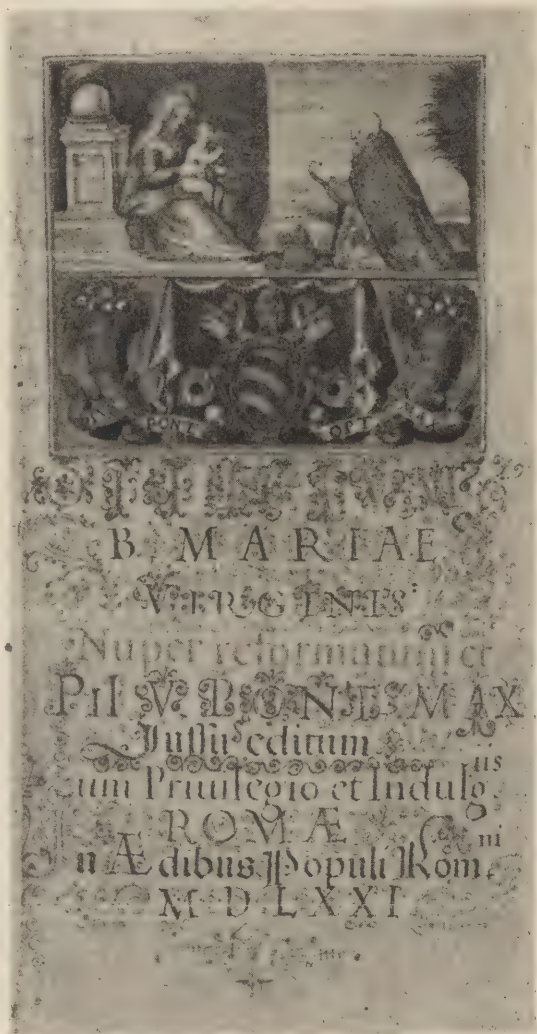 PONT OPT MAX
OFFICIVM
B. MARIAE
VIRGINIS
Nuper reformatum et
PII V. PONT. MAX
Iussu editum
cum Priuilegio et Indulgiis
ROMÆ
in Ædibus Populi Romni
M D LXXI